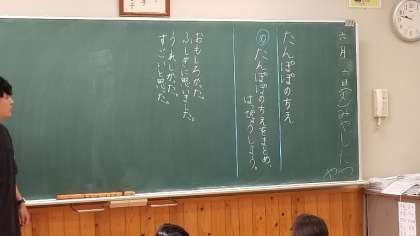 たんぽぽのちえ
たんぽぽのちえをまとめ、
はっぴょうしよう。
おもしろかった。
ふしぎに思いました。
うれしかった。
すごいと思った。